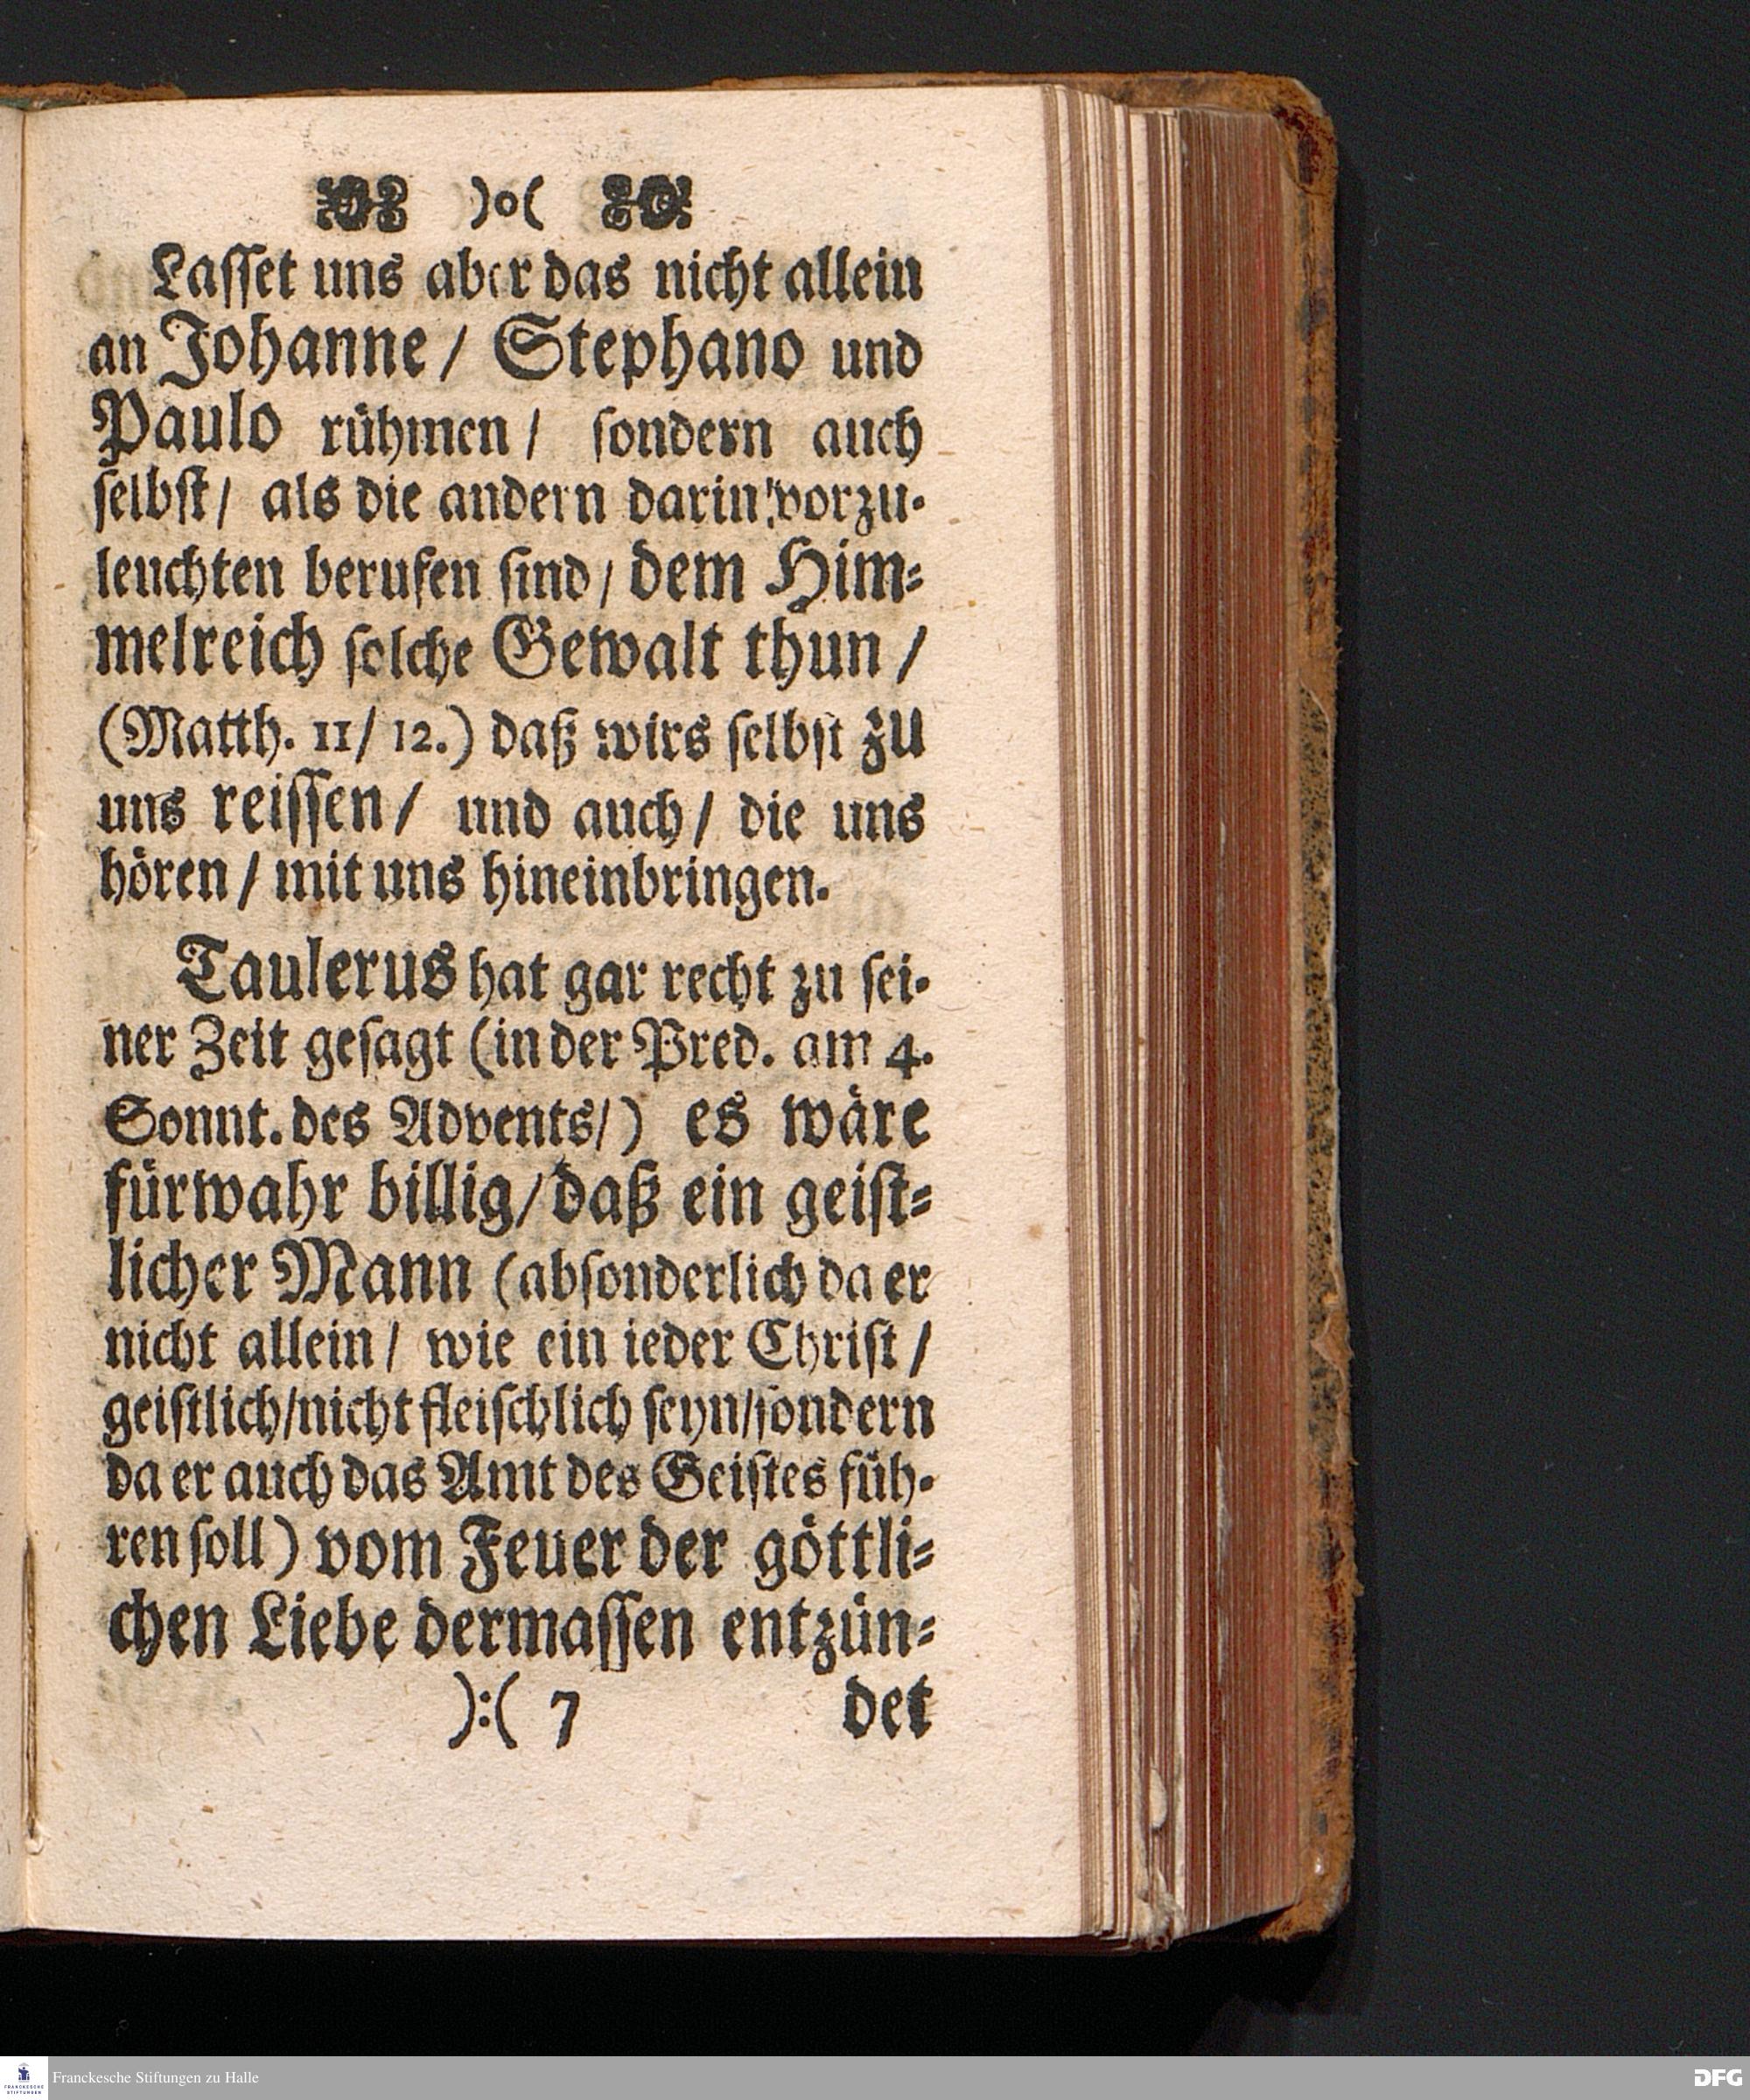 )o(
Laſſet uns aber das nicht allein
an Johanne/ Stephano und
Paulo rühmen/ ſondern auch
ſelbſt/ als die andern darin vorzu-
leuchten berufen ſind/ dem Him-
melreich ſolche Gewalt thun/
(Matth. 11/ 12.) daß wirs ſelbſt zu
uns reiſſen/ und auch/ die uns
hören/ mit uns hineinbringen.
Taulerus hat gar recht zu ſei-
ner Zeit geſagt (in der Pred. am 4.
Sonnt. des Advents/) es wäre
fürwahr billig/ daß ein geiſt-
licher Mann (abſonderlich da er
nicht allein/ wie ein ieder Chriſt/
geiſtlich/ nicht fleiſchlich ſeyn/ ſondern
da er auch das Amt des Geiſtes füh-
ren ſoll) vom Feuer der göttli-
chen Liebe dermaſſen entzün-
):( 7 det
FRANCKESCHE STIFTUNGEN
Franckesche Stiftungen zu Halle
DFG